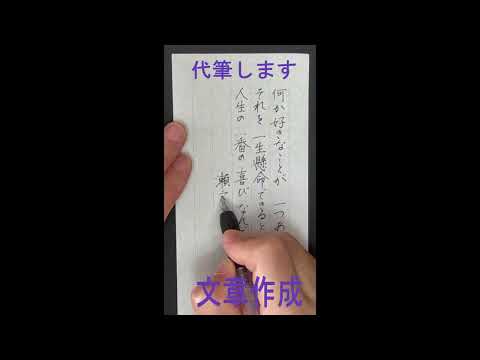 代筆します
何か好きなことが 一つあ
それを 一生懸命できると
人生の 一番の 喜びなん
瀬
文章作成